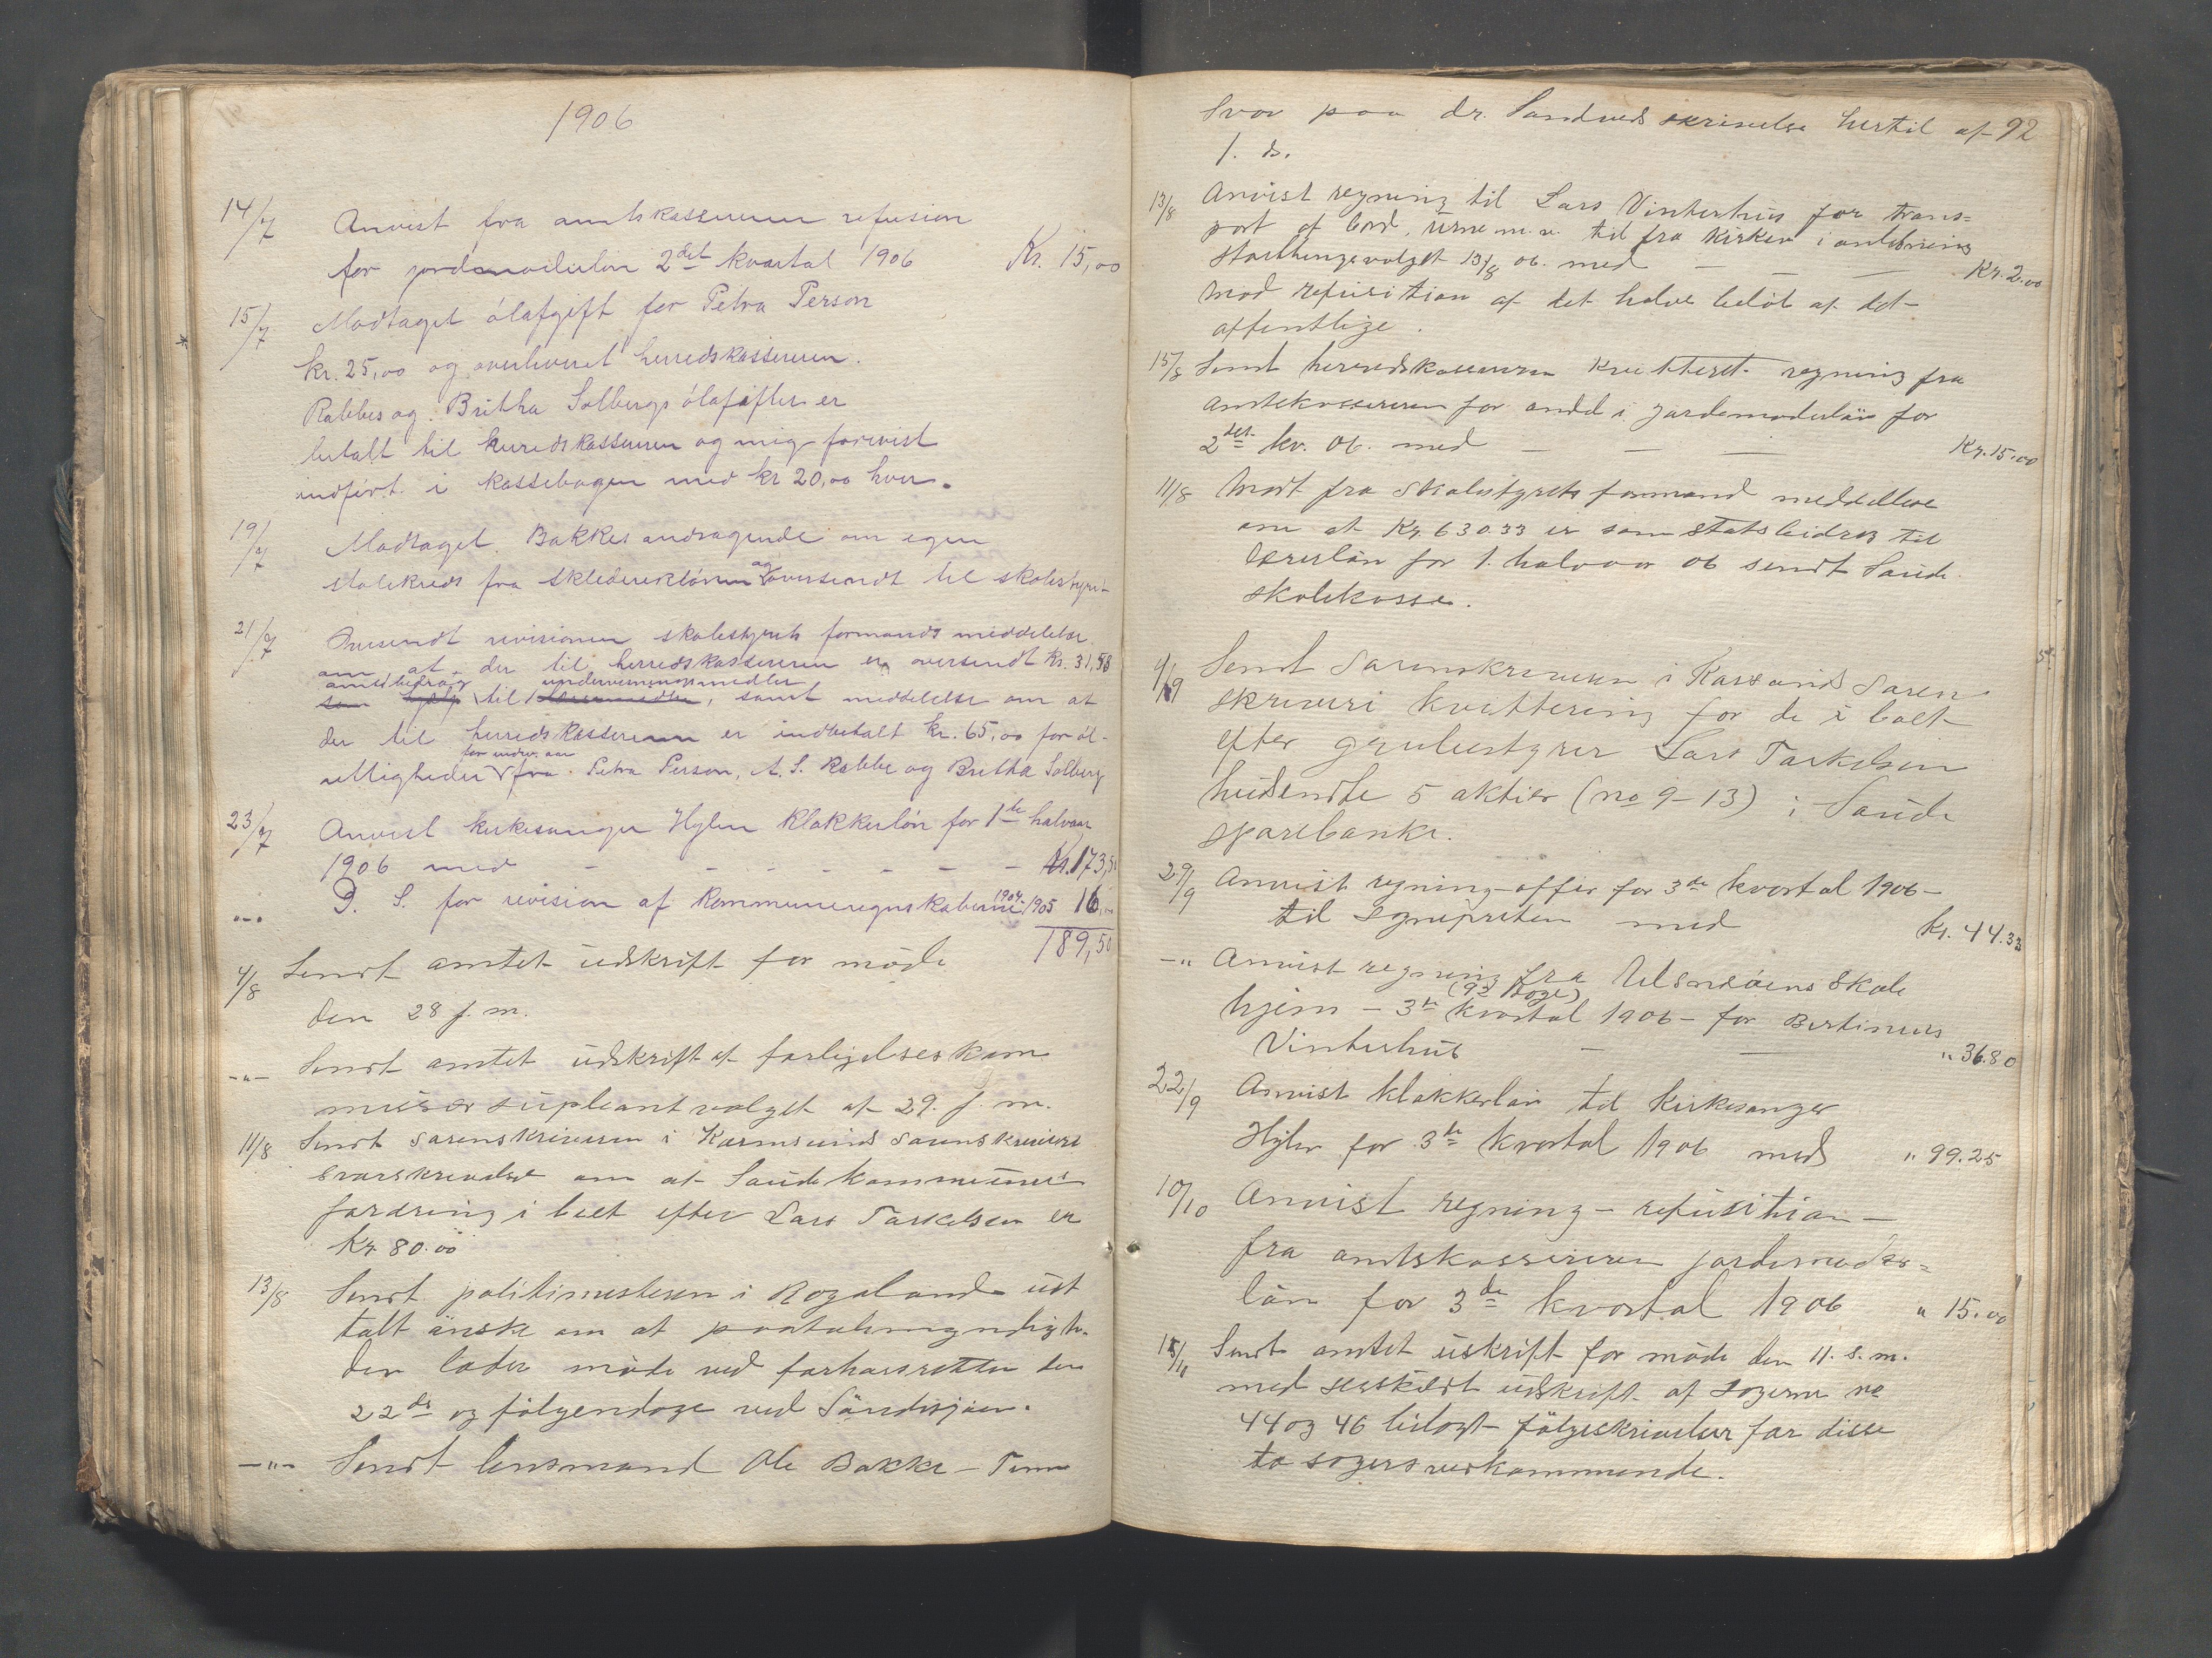 1906
14/7 Anvist fra amtskassereren refusion
for jordmoderløn 2det kvartal 1906 Kr. 15,00
15/7 Modtaget ólafgift for Petra Person
kr. 25,00 og overleveret herredskassereren.
Rabbes og Britha Solbergs ólafgifter er
betalt til herredskassereren og mig forevist
indført i kassebogen med kr 20,00 hver.
19/7 Modtaget Bakkes andragende om egen
skolekreds fra skoledirektören og oversendt til skolestyret
21/7 Oversendt revisionen skolestyrets formands meddelelse
om at der til herredskassereren er oversendt kr. 31,58
amtsbidrag undervisningsmidler
som til, samt meddelelse om at
der til herredskassereren er indbetalt kr. 65,00 for öl-
for indev. aar
rettigheder fra Petra Person, A. S. Rabbe og Britha Solberg
23/7 Anvist kirkesanger Hylen klokkerlön for 1ste halvaar
1906 med - - - - - - Kr. 173,50
-"- D. S. for revision af kommuneregnskaberne 1904-1905 16,00
189,50
4/8 Sendt amtet udskrift for möde
den 28 f. m.
-"- Sendt amtet udskrift af forligelseskom
misær supleantvalget af 29. f. m.
11/8 Sendt sorenskriveren i Karmsund sorenskriveri
svarskrivelse om at Saude kommunes
fordring i boet efter Lars Torkelsen er
Kr. 80.00
13/8 Sendt politimesteren i Rogaland ud
talt önske om at paatalemyndighe-
den lader möde ved forhørsretten den
22de og fölgendage ved Sandsjøen.
-"- Sendt lensmand Ole Bakke -
Svar paa dr. Sandveds skrivelse hertil af 92
1. ds.
13/8 Anvist regning til Lars Vinterhus for trans=
port af bord, urne m. v. til fra kirken i anledning
storthingsvalget 13/8 06. med - - - Kr. 2.00
mod refusition af det halve beløb af det
offentlige.
15/8 Sendt herredskassereren kvitteret regning fra
amtskassereren for andel i jordemoderlön for
2det kv. 06. med - - - Kr. 15.00
11/8 Modt fra skolestyrets formand meddellse
om at Kr. 630.33 er som statsbidrag til
lærerlön for 1. halvaar 06 sendt Saude
skolekasse.
4/9 Sendt Sorenskriveren i Karmsund Soren
skriveri kvittering for de i boet
efter grubestyrer Lars Torkelsen
hidsendte 5 aktier (no 9-13) i Saude
sparebank.
29/9 Anvist regning - offer for 3de kvartal 1906 -
til sognepresten med kr. 44.33
-" Anvist regning fra Ulsnesöens Skole
(92 dage)
hjem - 3de kvartal 1906 - for Bertinius
Vinterhus - - " 36.80
22/9 Anvist klokkerlön til kirkesanger
Hylen for 3de kvartal 1906 med " 99.25
10/10 Anvist regning - refusition -
fra amtskassereren jordemoder=
lön for 3de kvartal 1906 " 15.00
15/10 Sendt amtet uskrift for möde den 11. d. m.
med særskilt udskrift af sagerne no
44 og 46 bilagt fölgeskrivelser for disse
to sagers vedkommende.